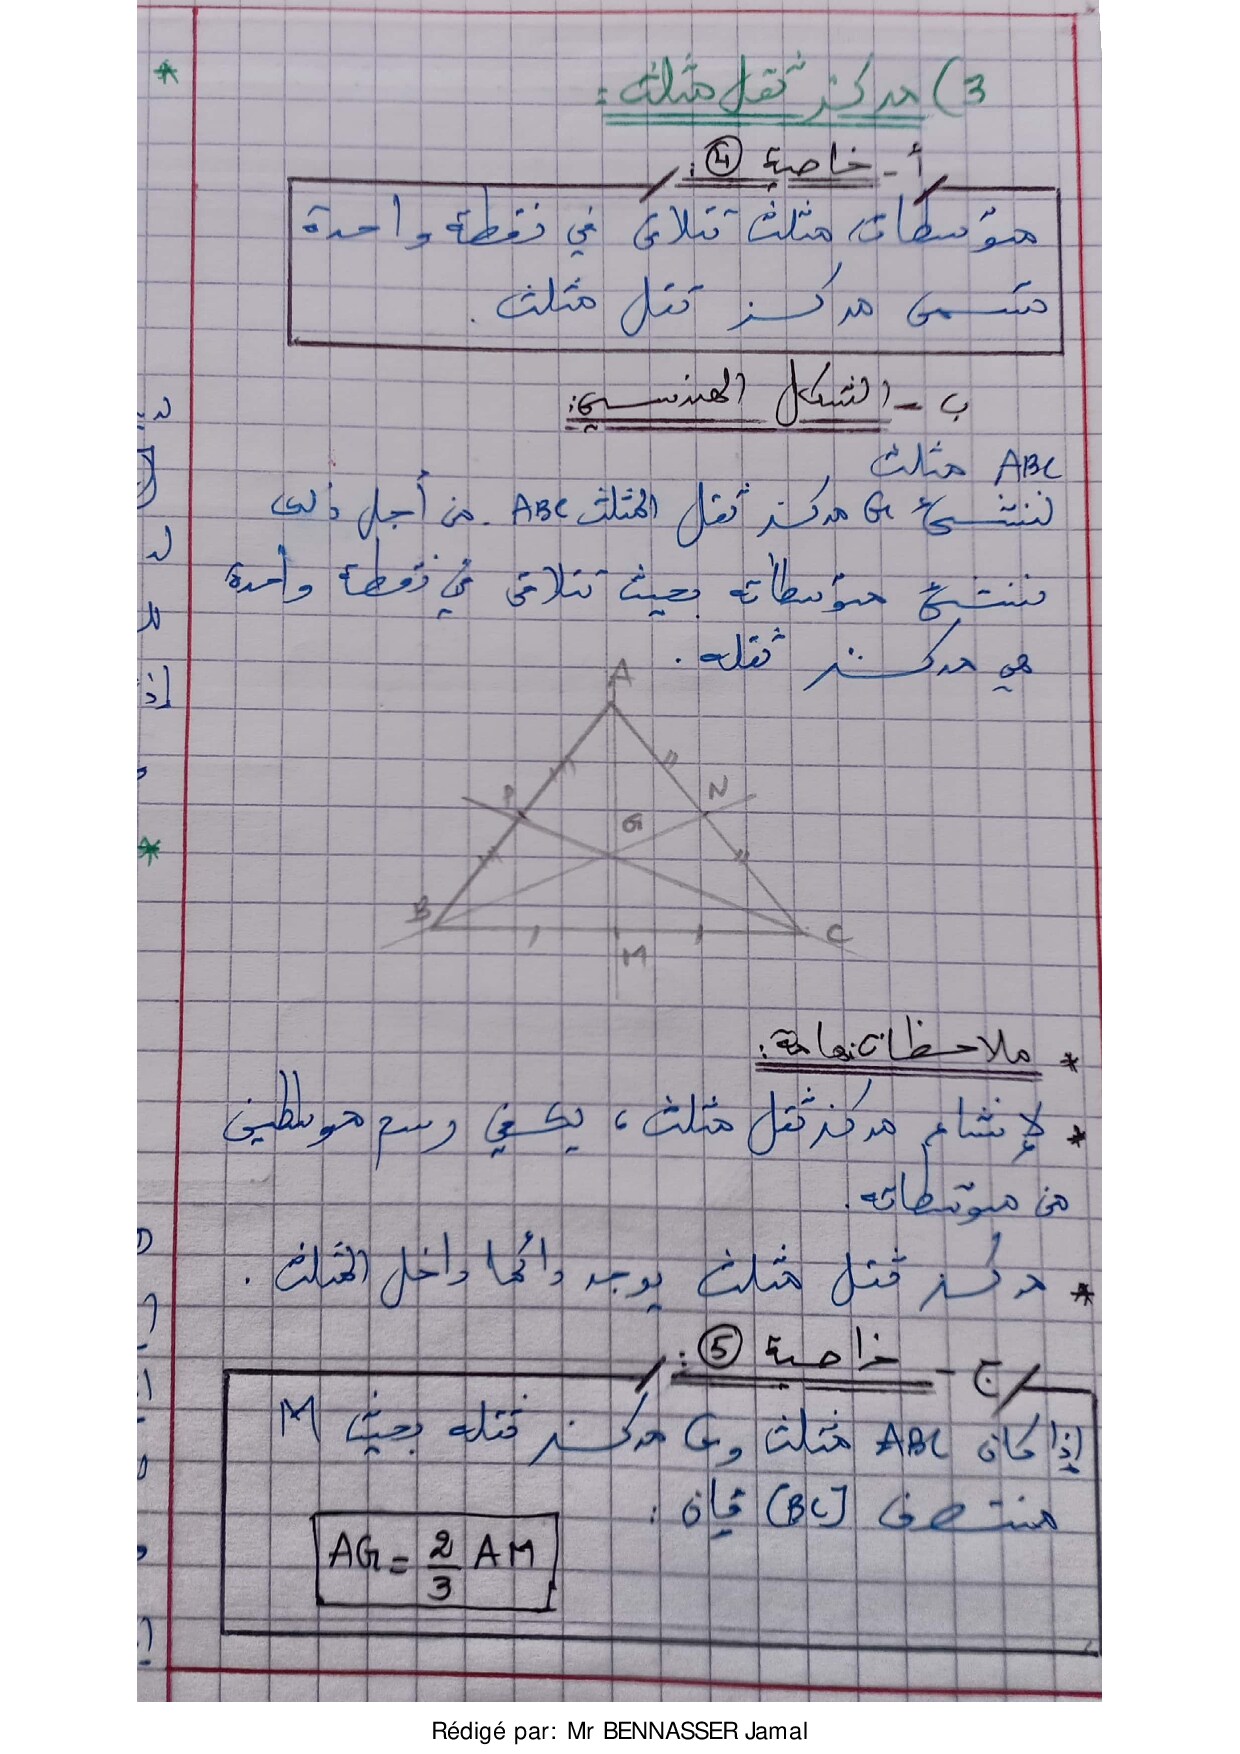 3) مركز ثقل مثلث :
أ- خاصية ④ :
متوسطات مثلث تتلاقى في نقطة واحدة
تسمى مركز ثقل مثلث .
ب - الشكل الهندسي :
ABC مثلث
لننشئ G مركز ثقل المثلث ABC . من أجل ذلك
ننشئ متوسطاته بحيث تتلاقى في نقطة واحدة
هي مركز ثقله .
A
P
N
G
B
C
M
* ملاحظات هامة :
* لإنشاء مركز ثقل مثلث ، يكفي رسم متوسطين
من متوسطاته .
* مركز ثقل مثلث يوجد دائما داخل المثلث .
ج - خاصية ⑤ :
إذا كان ABC مثلث و G مركز ثقله بحيث M
منتصف [BC] فإن :
AG = 2/3 AM
Rédigé par: Mr BENNASSER Jamal